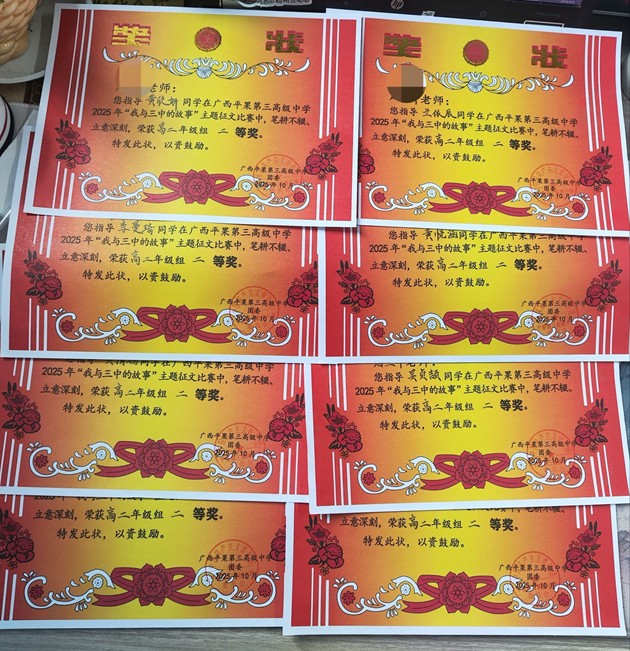 奖状
老师：
您指导黄欣妍同学在广西平果第三高级中学
2025年“我与三中的故事”主题征文比赛中，笔耕不辍、
立意深刻，荣获高二年级组 二 等奖。
特发此状，以资鼓励。
广西平果第三高级中学
团委
2025年10月
奖状
老师：
您指导 同学在广西平果第三高级中学
2025年“我与三中的故事”主题征文比赛中，笔耕不辍、
立意深刻，荣获高二年级组 二 等奖。
特发此状，以资鼓励。
广西平果第三高级中学
团委
2025年10月
您指导 同学在广西平果第三高级中学
2025年“我与三中的故事”主题征文比赛中，笔耕不辍、
立意深刻，荣获高二年级组 二 等奖。
特发此状，以资鼓励。
广西平果第三高级中学
团委
2025年10月
您指导 同学在广西平果第三高级中学
2025年“我与三中的故事”主题征文比赛中，笔耕不辍、
立意深刻，荣获高二年级组 二 等奖。
特发此状，以资鼓励。
广西平果第三高级中学
团委
2025年10月
您指导 同学在广西平果第三高级中学
2025年“我与三中的故事”主题征文比赛中，笔耕不辍、
立意深刻，荣获高二年级组 二 等奖。
特发此状，以资鼓励。
广西平果第三高级中学
团委
2025年10月
您指导 同学在广西平果第三高级中学
2025年“我与三中的故事”主题征文比赛中，笔耕不辍、
立意深刻，荣获高二年级组 二 等奖。
特发此状，以资鼓励。
广西平果第三高级中学
团委
2025年10月
2025年“我与三中的故事”主题征文比赛中，笔耕不辍、
立意深刻，荣获高二年级组 二 等奖。
特发此状，以资鼓励。
广西平果第三高级中学
团委
2025年10月
立意深刻，荣获高二年级组 二 等奖。
特发此状，以资鼓励。
广西平果第三高级中学
团委
2025年10月